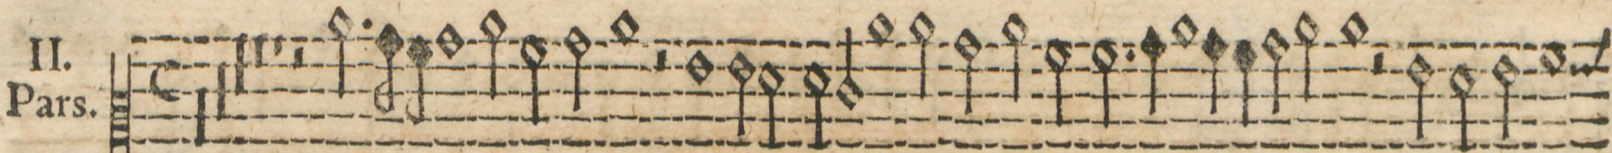 II.
Pars.